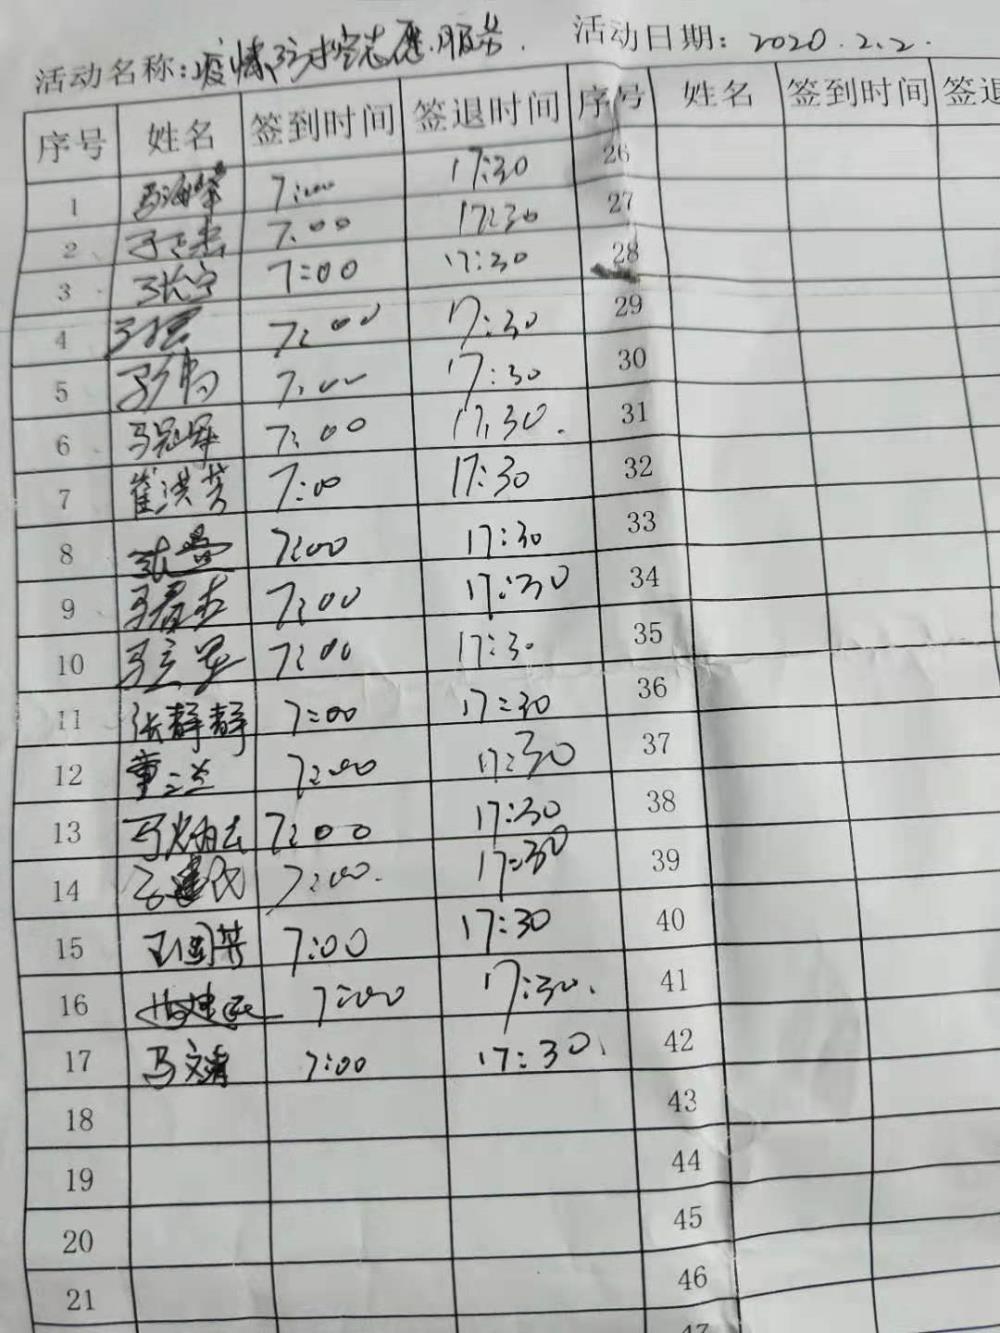 活动名称: 疫情防控志愿服务. 活动日期: 2020.2.2.
序号 姓名 签到时间 签退时间 序号 姓名 签到时间 签退
1 马海峰 7:00 17:30 26
2 7:00 17:30 27
3 7:00 17:30 28
4 7:00 17:30 29
5 7:00 17:30 30
6 马冠军 7:00 17:30. 31
7 崔洪芳 7:00 17:30 32
8 7:00 17:30 33
9 7:00 17:30 34
10 马立军 7:00 17:30 35
11 张静静 7:00 17:30 36
12 董三兰 7:00 17:30 37
13 7:00 17:30 38
14 7:00. 17:30 39
15 7:00 17:30 40
16 7:00 17:30. 41
17 马文涛 7:00 17:30. 42
18 43
19 44
20 45
21 46
47